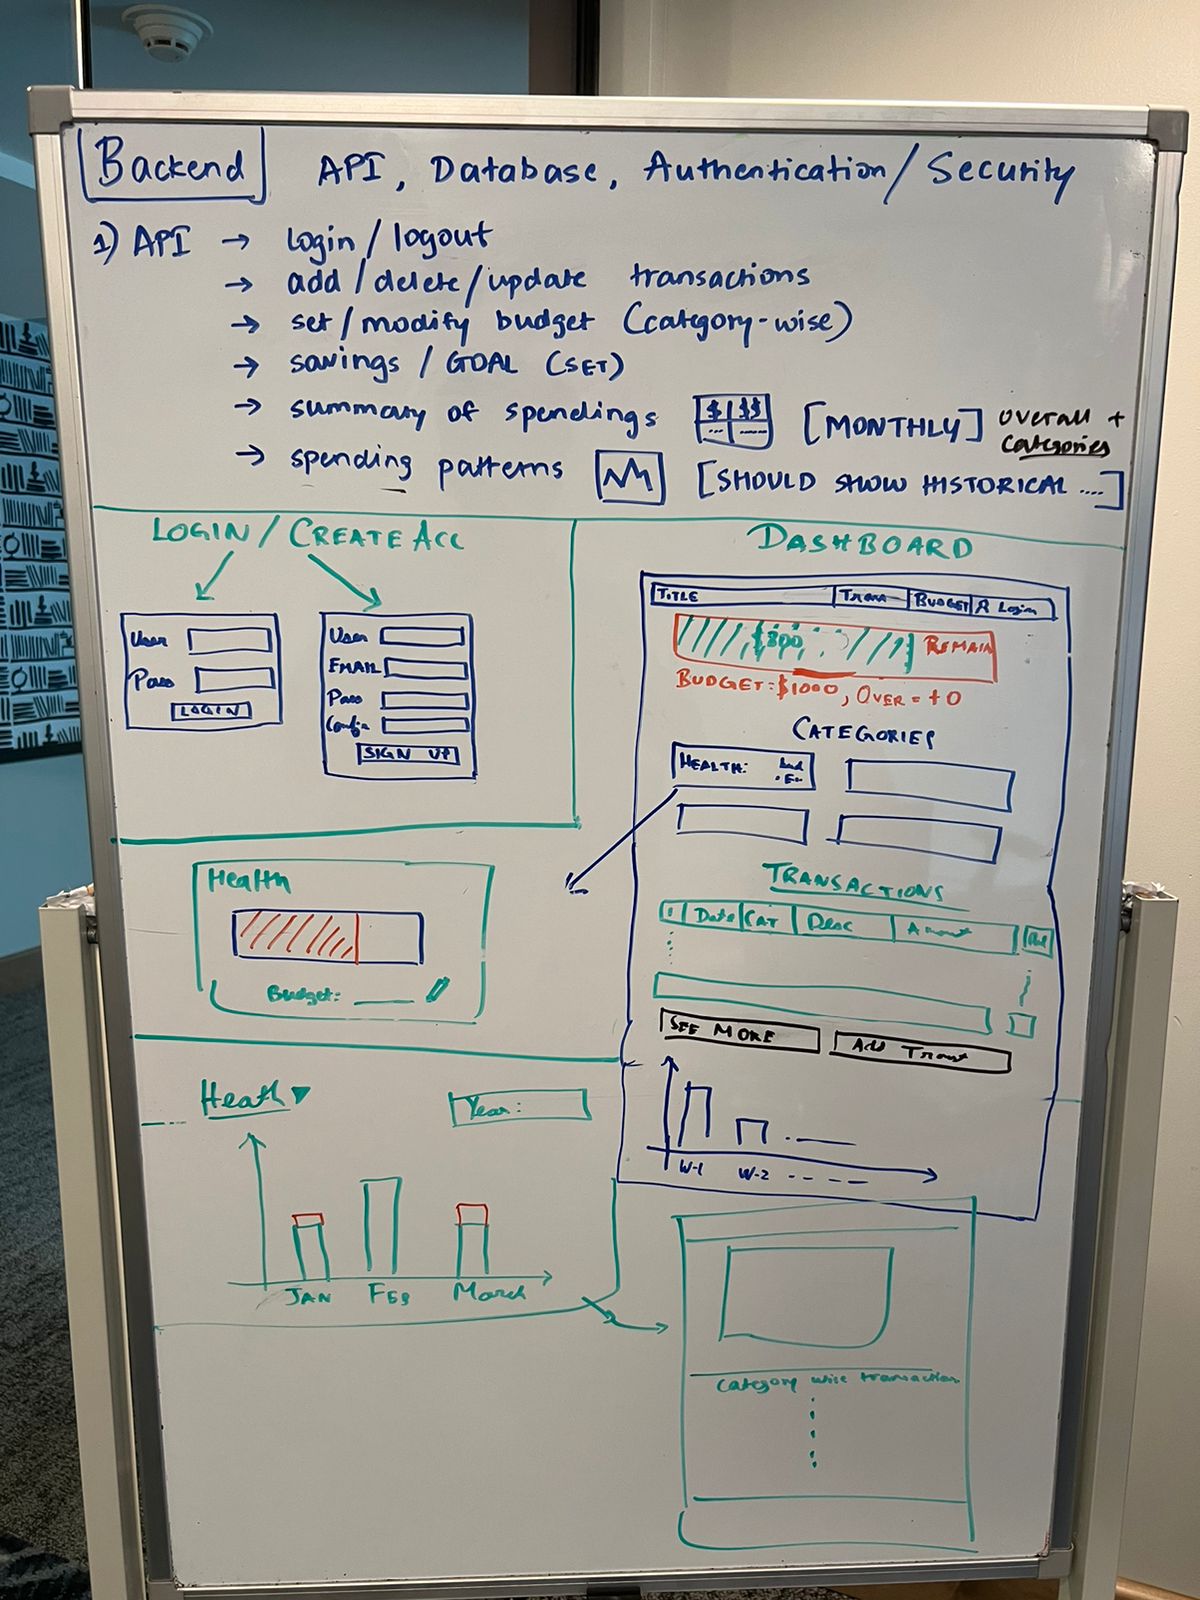 Backend API, Database, Authentication/Security
1) API → login/logout
→ add/delete/update transactions
→ set/modify budget (category-wise)
→ savings / GOAL (SET)
→ summary of spendings $ $$ [MONTHLY] overall + categories
→ spending patterns [SHOULD SHOW HISTORICAL ....]
LOGIN / CREATE ACC
User
Pass
LOGIN
User
EMAIL
Pass
SIGN UP
DASHBOARD
TITLE Trans BUDGET Login
$800 REMAIN
BUDGET: $1000, OVER = +0
CATEGORIES
HEALTH:
TRANSACTIONS
Date CAT Desc Amount
SEE MORE Add Trans
W-1 W-2
Health
Budget:
Heath Year:
JAN FEB March
Category wise transaction